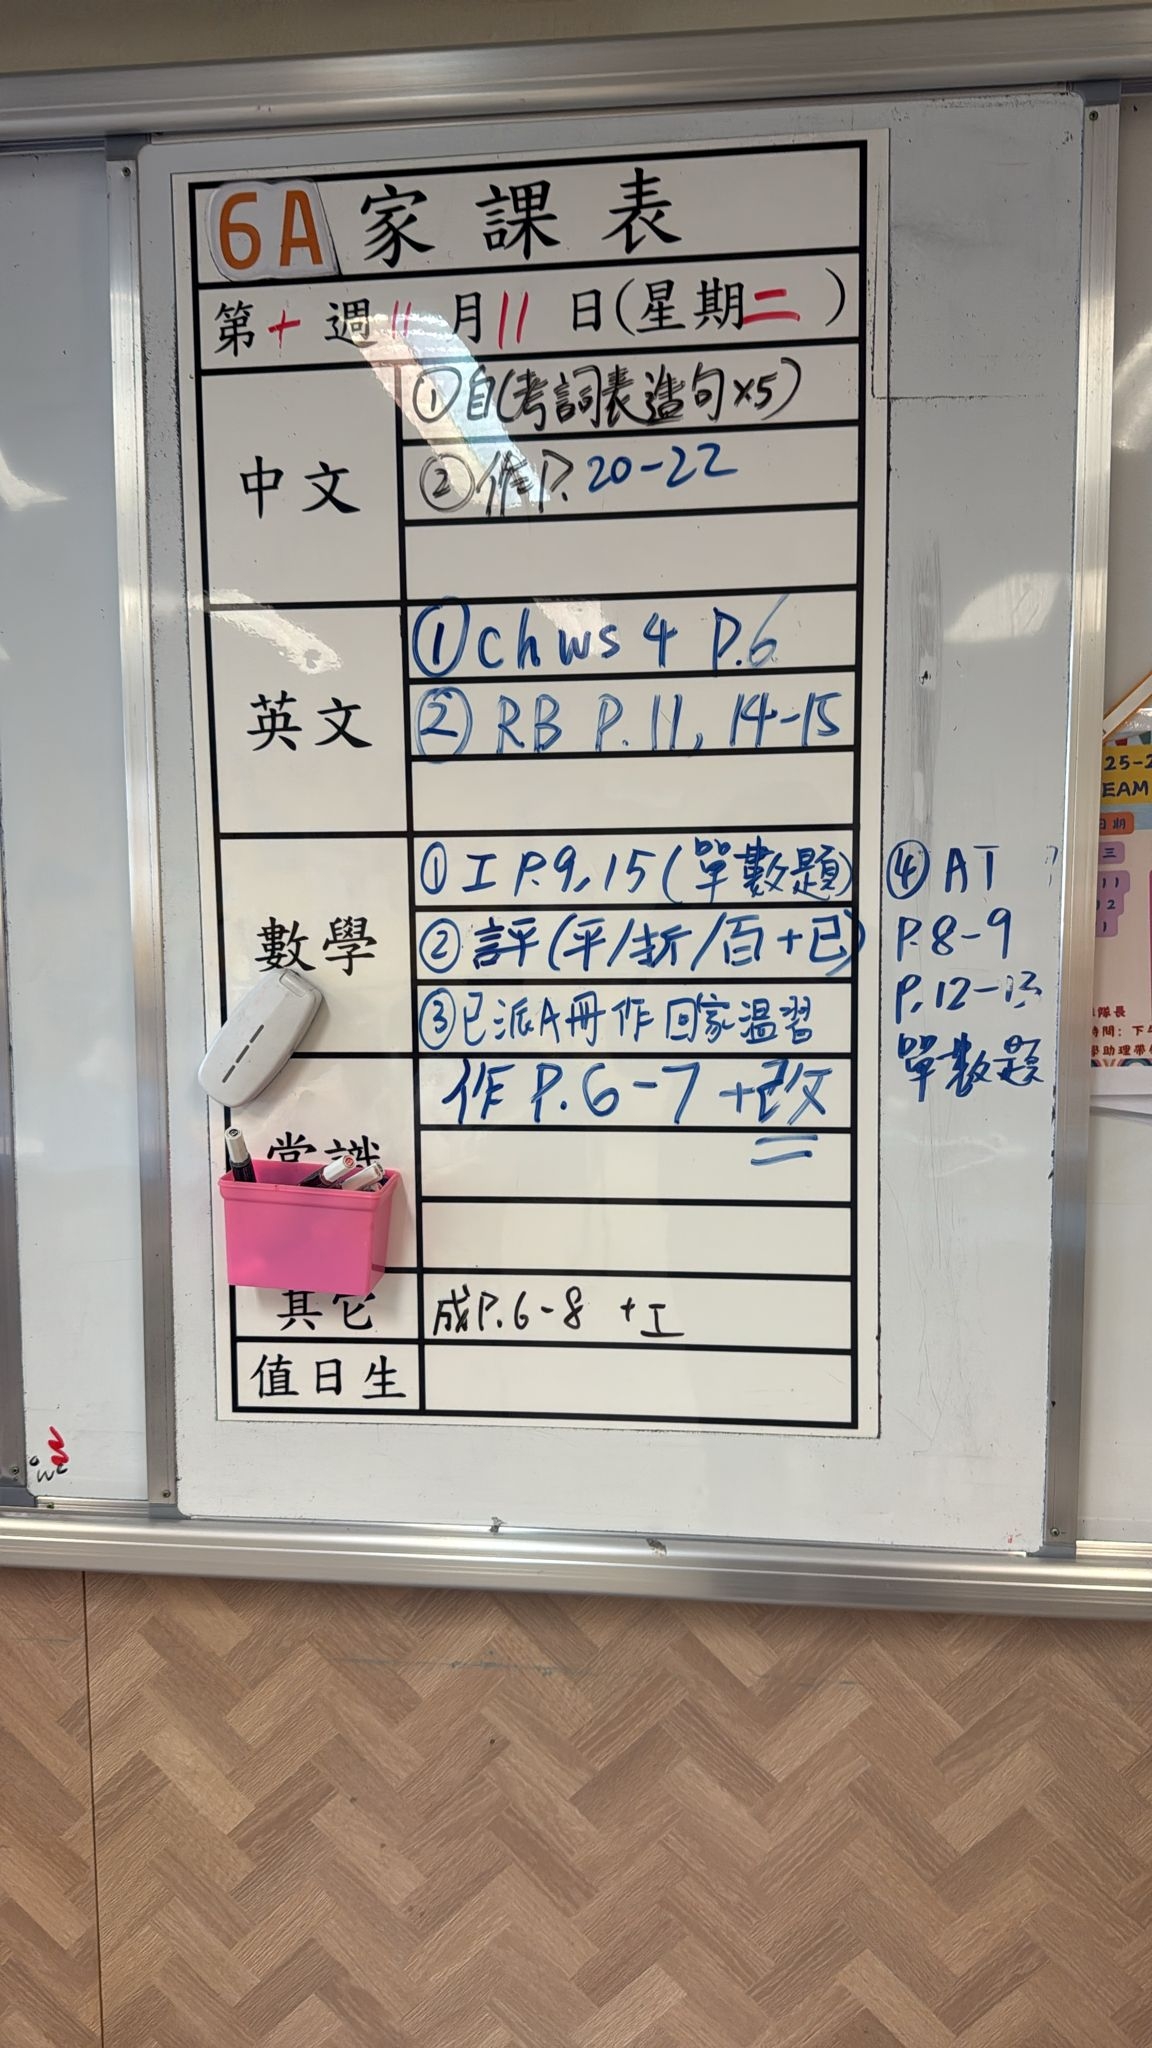 6A 家課表
第十週 11月11日(星期二)
中文
①自(考詞表造句×5)
②作P.20-22
英文
①ch ws 4 P.6
②RB P.11, 14-15
數學
①工 P.9, 15(單數題)
②評(平/折/百+已)
③已派A冊作回家溫習
④AT
P.8-9
P.12-13
單數題
常識
作 P.6-7 +改
其它
成P.6-8 +工
值日生
25-2
EAM
日期
三
隊長
時間：下午
學助理帶